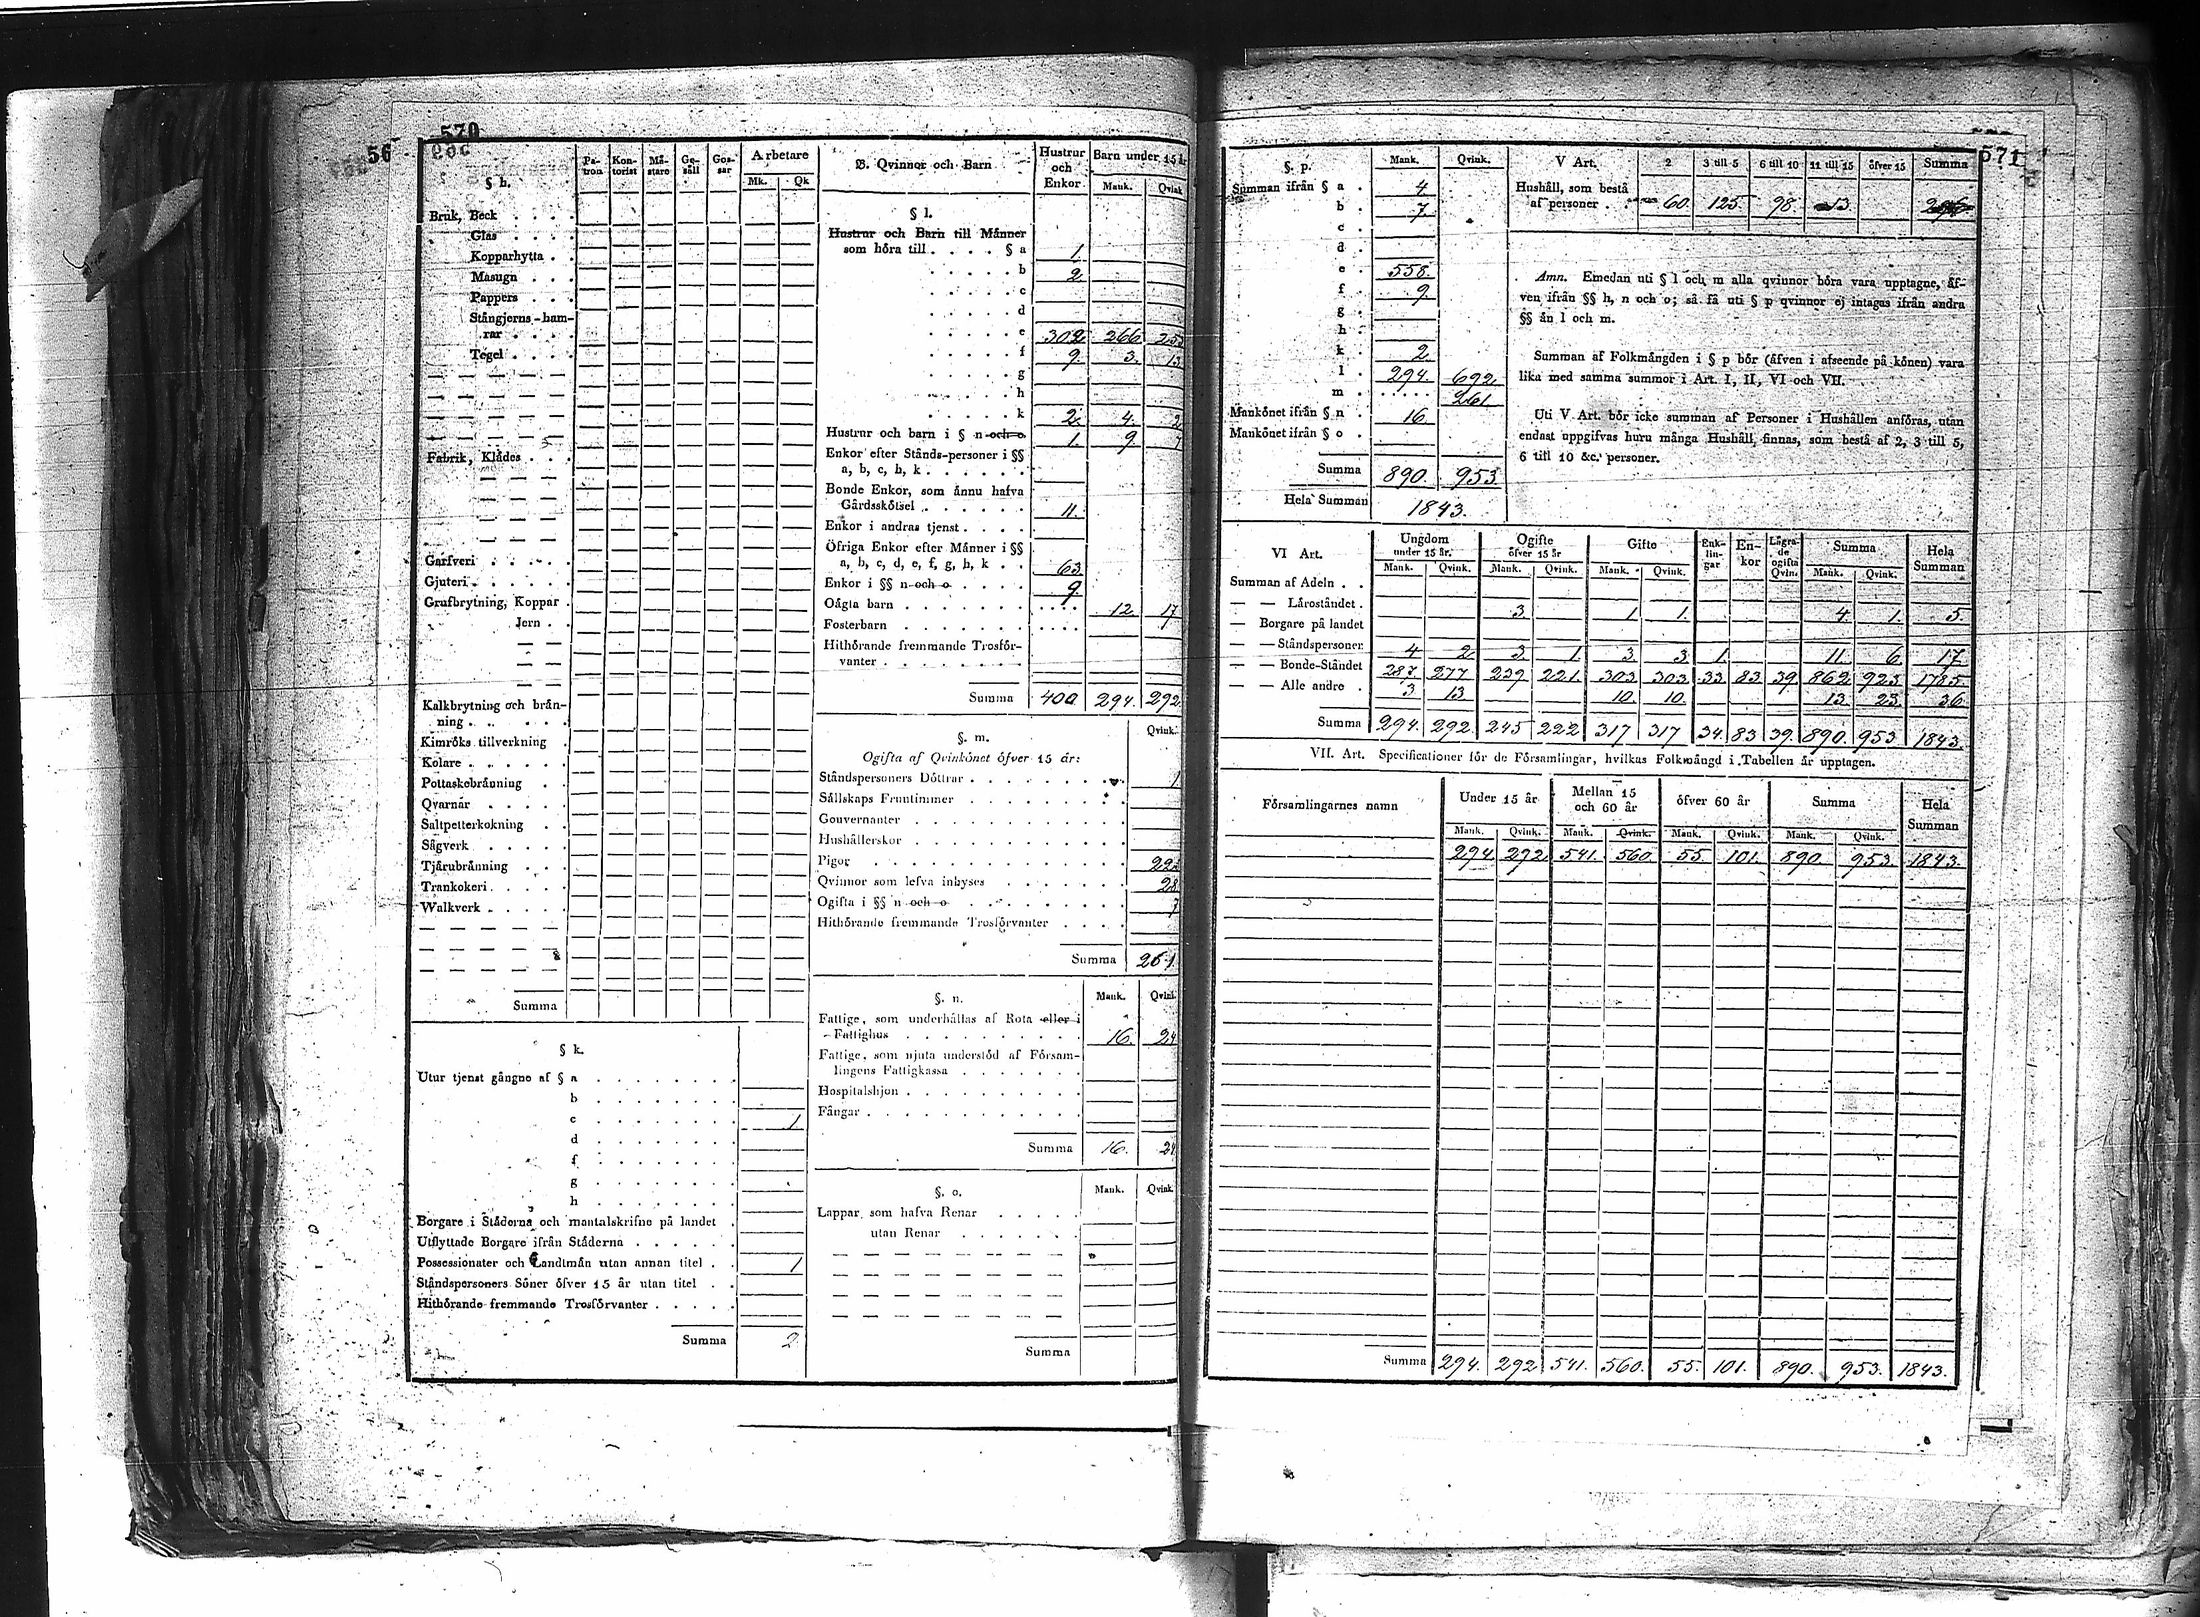 570
56
571
§ h. Pa-tron Kon-torist Mä-stare Ge-säll Gos-sar Arbetare
Mk. Qk
Bruk, Beck . . . .
Glas . . . .
Kopparhytta . .
Masugn . . .
Pappers . . .
Stångjerns-ham-
rar . . . .
Tegel . . . .
Fabrik, Klädes . . .
Garfveri . . . . .
Gjuteri . . . . .
Grufbrytning, Koppar .
Jern . .
Kalkbrytning och brän-
ning . . . . . .
Kimröks tillverkning .
Kolare . . . . . .
Pottaskebränning . .
Qvarnar . . . . .
Saltpetterkokning . .
Sågverk . . . . .
Tjärubränning . . .
Trankokeri . . . .
Walkverk . . . . .
Summa
§ k.
Utur tjenst gångne af § a
b
c 1
d
f
g
h
Borgare i Städerna och mantalskrifne på landet .
Utflyttade Borgare ifrån Städerna . . . . .
Possessionater och Landtmän utan annan titel . . 1
Ståndspersoners Söner öfver 15 år utan titel . .
Hithörande fremmande Trosförvanter . . . . .
Summa 2
B. Qvinnor och Barn Hustrur och Enkor Barn under 15 år
Mank. Qvink
§ l.
Hustrur och Barn till Männer
som höra till . . . . § a 1.
b 2.
c
d
e 302 266
f 9. 3. 13
g
h
k 2. 4. 2
Hustrur och barn i § n och o 1. 9. 7
Enkor efter Stånds-personer i §§
a, b, c, h, k . . . . . .
Bonde Enkor, som ännu hafva
Gårdsskötsel . . . . . . 11.
Enkor i andras tjenst . . . .
Öfriga Enkor efter Männer i §§
a, b, c, d, e, f, g, h, k . . 63
Enkor i §§ n och o . . . . 9.
Oägta barn . . . . . . . 12 17
Fosterbarn . . . . . . .
Hithörande fremmande Trosför-
vanter . . . . . . . .
Summa 400 294. 292
§. m. Qvink.
Ogifta af Qvinkönet öfver 15 år:
Ståndspersoners Döttrar . . . . . . . 1
Sällskaps Fruntimmer . . . . . . .
Gouvernanter . . . . . . . . . .
Hushållerskor . . . . . . . . . .
Pigor . . . . . . . . . . .
Qvinnor som lefva inhyses . . . . . . 28
Ogifta i §§ n och o . . . . . . . 7
Hithörande fremmande Trosförvanter . . . .
Summa 261
§. n. Mank. Qvink.
Fattige, som underhållas af Rota eller i
Fattighus . . . . . . . . . 16. 24
Fattige, som njuta understöd af Försam-
lingens Fattigkassa . . . . . .
Hospitalshjon . . . . . . . . .
Fångar . . . . . . . . . . .
Summa 16. 24
§. o. Mank. Qvink.
Lappar, som hafva Renar . . . . .
utan Renar . . . . . .
Summa
§. p. Mank. Qvink.
Summan ifrån § a . 4
b . 7.
c .
d .
e . 558.
f . 9.
g .
h .
k . 2.
l . 294. 692.
m . 261
Mankönet ifrån § n . 16.
Mankönet ifrån § o .
Summa 890. 953
Hela Summan 1843.
V Art. 2 3 till 5 6 till 10 11 till 15 öfver 15 Summa
Hushåll, som bestå
af personer . . 60. 125. 98. 13.
Anm. Emedan uti § l och m alla qvinnor böra vara upptagne, äf-
ven ifrån §§ h, n och o; så få uti § p qvinnor ej intagas ifrån andra
§§ än l och m.
Summan af Folkmängden i § p bör (äfven i afseende på könen) vara
lika med samma summor i Art. I, II, VI och VII.
Uti V Art. bör icke summan af Personer i Hushållen anföras, utan
endast uppgifvas huru många Hushåll finnas, som bestå af 2, 3 till 5,
6 till 10 &c. personer.
VI Art. Ungdom under 15 år. Ogifte öfver 15 år Gifte Enk-lin-gar En-kor Lägra-de ogifta Qvin. Summa Hela Summan
Mank. Qvink. Mank. Qvink. Mank. Qvink. Mank. Qvink.
Summan af Adeln . .
— — Läroståndet . 3. 1 1. 4. 1. 5.
— Borgare på landet
— — Ståndspersoner 4 2 3. 1. 3. 3. 1. 11. 6. 17.
— — Bonde-Ståndet 287. 277 239. 221. 303. 303. 33. 83 39. 862 923. 1785.
— — Alle andre . 3 13 10. 10. 13 23. 36
Summa 294. 292 245 222 317 317 34. 83 39. 890. 953 1843.
VII. Art. Specificationer för de Församlingar, hvilkas Folkmängd i Tabellen är upptagen.
Församlingarnes namn Under 15 år Mellan 15 och 60 år öfver 60 år Summa Hela Summan
Mank. Qvink. Mank. Qvink. Mank. Qvink. Mank. Qvink.
294. 292 541. 560. 55. 101. 890. 953. 1843.
Summa 294. 292 541. 560. 55. 101. 890. 953. 1843.